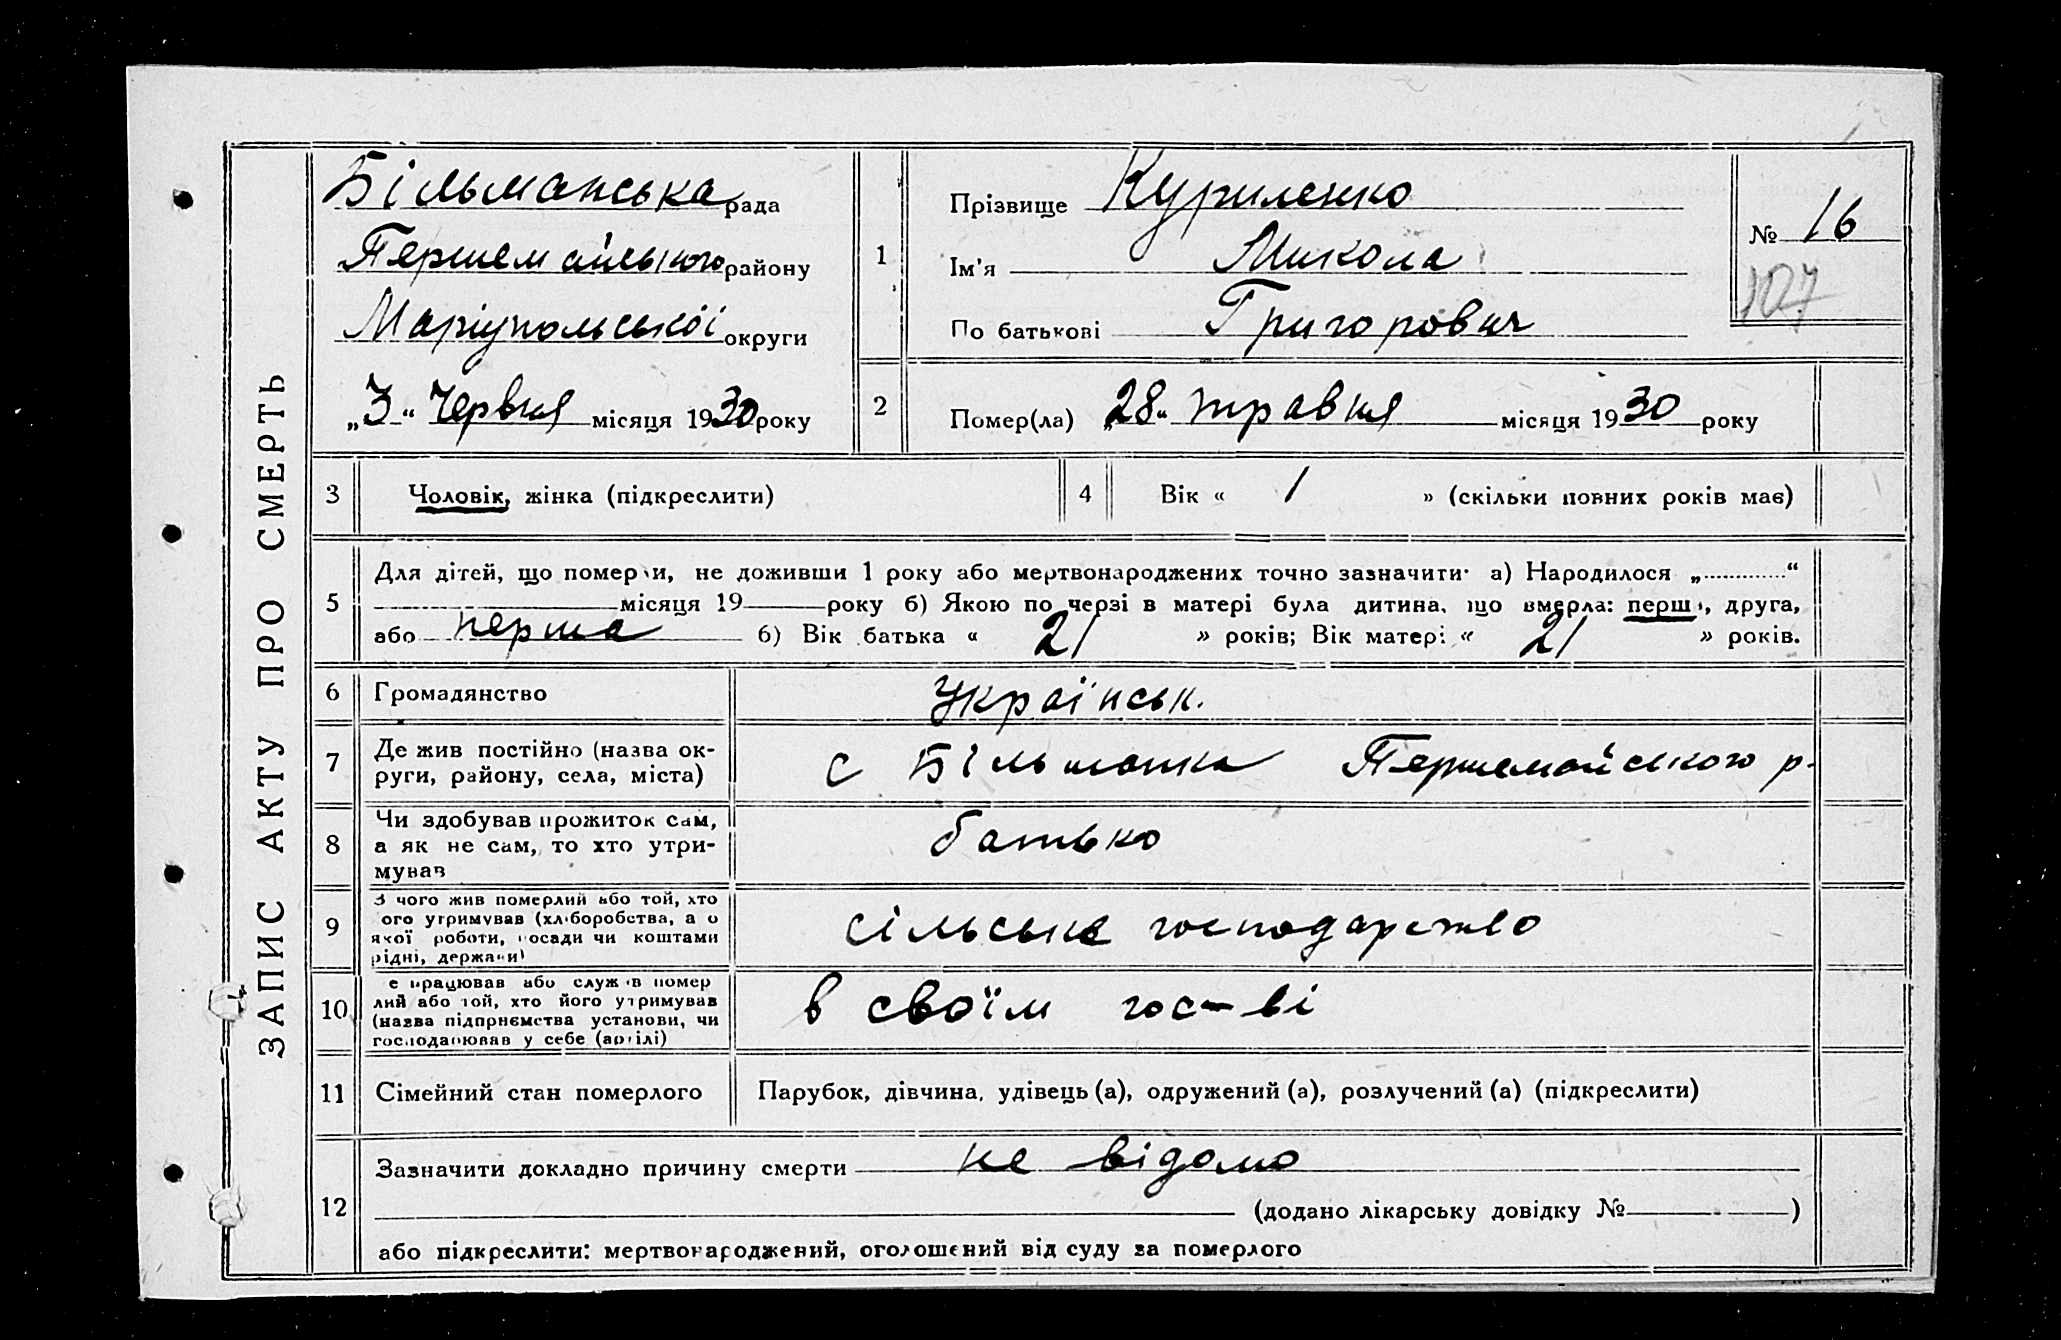 ЗАПИС АКТУ ПРО СМЕРТЬ
Більманська рада
Першемайського району
Маріупольської округи
„3“ Червня місяця 1930 року
1
Прізвище Куриленко
Ім’я Микола
По батькові Григорович
№ 16
107
2
Помер(ла) „28“ травня місяця 1930 року
3
Чоловік, жінка (підкреслити)
4
Вік « 1 » (скільки повних років має)
5
Для дітей, що померли, не доживши 1 року або мертвонароджених точно зазначити· а) Народилося „............“
місяця 19 року б) Якою по черзі в матері була дитина, що вмерла: перша, друга,
або перша б) Вік батька « 21 » років; Вік матері « 21 » років.
6
Громадянство
Українськ.
7
Де жив постійно (назва ок-
руги, району, села, міста)
с Більманка Першемайського р.
8
Чи здобував прожиток сам,
а як не сам, то хто утри-
мував
батько
9
З чого жив померлий або той, хто
ого утримував (хліборобства, а о
якої роботи, посади чи коштами
рідні, держави)
сільське господарство
10
е працював або служив помер
лий або той, хто його утримував
(назва підпрнємства установи, чи
господарював у себе (артілі)
в своїм гос-ві
11
Сімейний стан померлого
Парубок, дівчина, удівець (а), одружений (а), розлучений (а) (підкреслити)
12
Зазначити докладно причину смерти не відомо
(додано лікарську довідку № )
або підкреслити: мертвонароджений, оголошений від суду за померлого